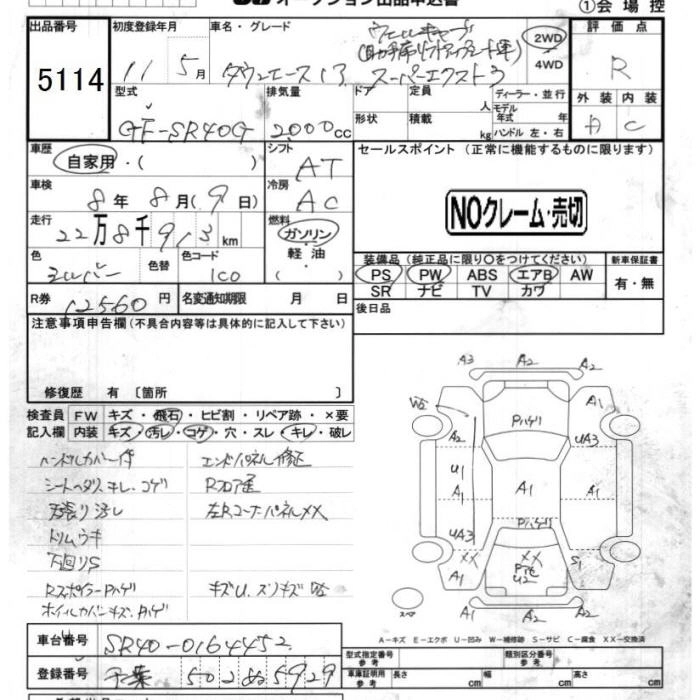 オークション出品申込書
①会場控
出品番号 初度登録年月 車名・グレード 2WD 4WD 評価点
5114 11 5月 タウンエース バン スーパーエクストラ R
ウェルキャブ
(助手席リフトアップシート車)
型式 排気量 ドア 定員 人 ディーラー・並行 外装 内装
GF-SR40G 2000cc 形状 積載 kg モデル年式 年 ハンドル 左・右 A C
車歴 シフト セールスポイント (正常に機能するものに限ります)
自家用・( ) AT
車検 冷房
8年 8月(9日) AC NOクレーム・売切
走行 燃料
22万8千913km ガソリン
色 色替 色コード 軽油
シルバー 1C0 ( )
装備品(純正品に限り〇をつけてください) 新車保証書
PS PW ABS エアB AW 有・無
SR ナビ TV カワ
R券 12560円 名変通知期限 月 日 後日品
注意事項申告欄(不具合内容等は具体的に記入して下さい)
修復歴 有 〔箇所 〕
検査員 FW キズ・飛石・ヒビ割・リペア跡・×要
記入欄 内装 キズ・汚レ・コゲ・穴・スレ・キレ・破レ
ハンドルカバー付 エンドパネル修正
シートヘタリ、キレ、コゲ Rフロア歪
天張り汚レ 左RコーナーパネルXX
トリムウキ
下回りS
Rスポイラー Pハゲ キズU、スリキズ 
ホイルカバーキズ、ハゲ
A3 A2 A2
W2 Pハゲ A1
A2 UA3
U1
A1 A1 A1
UA3 Pハゲ
XX XX S1
A1 U2
スペア A2 A2
A-キズ E-エクボ U-凹み W-補修跡 S-サビ C-腐食 XX-交換済
車台番号 SR40-0164452
登録番号 千葉 502 ぬ 5929
型式指定番号 参考 類別区分番号 参考
車庫証明用 参考 長さ cm 幅 cm 高さ cm